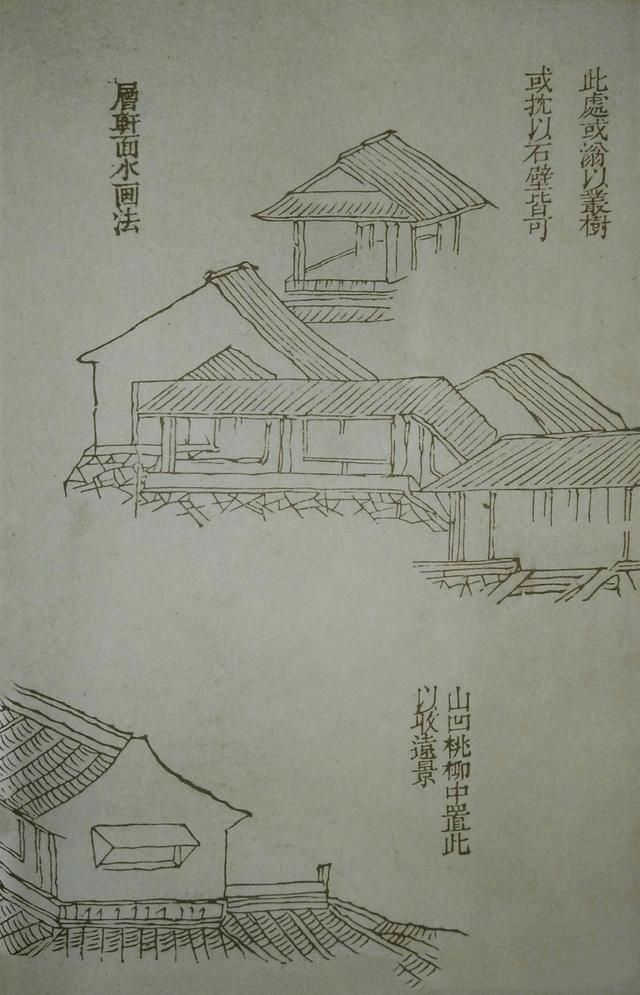 此處或滃以叢樹
或抌以石壁皆可
層軒面水画法
山凹桃柳中置此
以收遠景